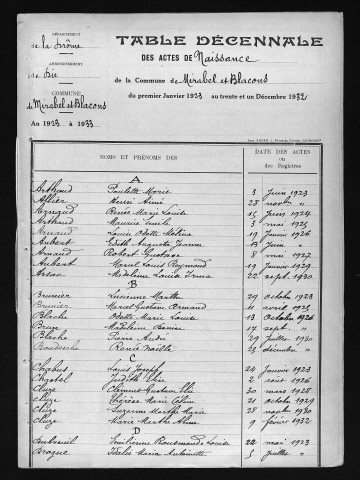 DÉPARTEMENT
de la Drôme
ARRONDISSEMENT
de Die
COMMUNE
d Mirabel et Blacons
An 1923 à 1933
TABLE DÉCENNALE
DES ACTES DE Naissance
de la Commune de Mirabel et Blacons
du premier Janvier 1923 au trente et un Décembre 1932
NOMS ET PRÉNOMS DES DATE DES ACTES
ou
des Registres
A
Arthaud Paulette Marie 3 Juin 1923
Allier Henri Aimé 23 novbre "
Arnaud Renée Marie Louise 15 Juin 1924
Arthaud Maurice Emile 3 mai 1925
Arnaud Louis Odette 19 Janvier 1926
Aubert Edith Augusta Jeanne 13 Juin "
Arnaud Robert Gustave 8 mai 1927
Aubert Marcel Louis Raymond 19 Janvier 1929
Arsac Madeleine Louise Irma 22 sept. 1930
B
Brunier Lucienne Marthe 29 octobre 1923
Brunier Marcel Gustave Armand 6 avril 1925
Blache Odette Marie Louise 13 octobre 1926
Brun Madeleine Denise 17 sept. "
Blache Pierre André 29 Juillet 1930
Renée 28 décembre "
C
Chabus Louis Joseph 24 Janvier 1923
Judith 2 août 1926
Cluze Clément Gustave Elie 30 mars 1928
Cluze Thérèse Marie Céline 21 octobre 1929
Cluze Suzanne Marthe Marie 28 novbre 1930
Cluze Marie Marthe Aline 9 février 1932
D
Emilienne Louise 22 mai 1923
Maria Antoinette 5 Juillet "